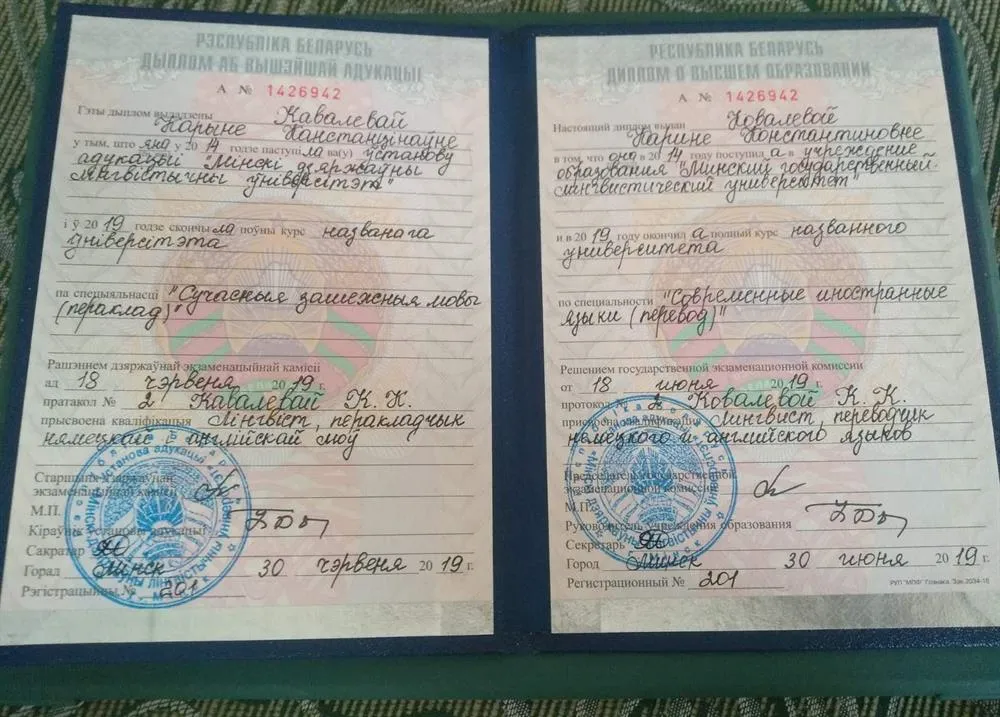 РЭСПУБЛІКА БЕЛАРУСЬ
ДЫПЛОМ АБ ВЫШЭЙШАЙ АДУКАЦЫІ
А № 1426942
Гэты дыплом выдадзены Кавалевай
Карыне Канстанцінаўне
у тым, што яна у 2014 годзе паступіла ва(у) установу
адукацыі "Мінскі дзяржаўны
лінгвістычны ўніверсітэт"
і ў 2019 годзе скончыла поўны курс названага
ўніверсітэта
па спецыяльнасці "Сучасныя замежныя мовы
(пераклад)"
Рашэннем дзяржаўнай экзаменацыйнай камісіі
ад 18 чэрвеня 2019 г.
пратакол № 2 Кавалевай К. К.
прысвоена кваліфікацыя Лінгвіст, перакладчык
нямецкай і англійскай моў
Старшыня дзяржаўнай
экзаменацыйнай камісіі
М.П.
Кіраўнік установы адукацыі
Сакратар
Горад Мінск 30 чэрвеня 2019 г.
Рэгістрацыйны № 201
РЕСПУБЛИКА БЕЛАРУСЬ
ДИПЛОМ О ВЫСШЕМ ОБРАЗОВАНИИ
А № 1426942
Настоящий диплом выдан Ковалевой
Карине Константиновне
в том, что она в 2014 году поступила в учреждение
образования "Минский государственный
лингвистический университет"
и в 2019 году окончила полный курс названного
университета
по специальности "Современные иностранные
языки (перевод)"
Решением государственной экзаменационной комиссии
от 18 июня 2019 г.
протокол № 2 Ковалевой К. К.
присвоена квалификация Лингвист, переводчик
немецкого и английского языков
Председатель государственной
экзаменационной комиссии
М.П.
Руководитель учреждения образования
Секретарь
Город Минск 30 июня 2019 г.
Регистрационный № 201
РУП "МПФ" Гознака. Зак. 2034-18